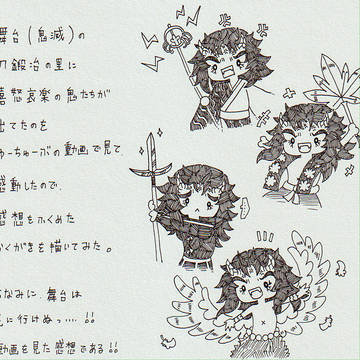 舞台(鬼滅)の
刀鍛冶の里に
喜怒哀楽の鬼たちが
出てたのを
ゅーちゅーぶの動画で見て、
感動したので、
感想をふくめた
らくがきを描いてみた。
なみに、舞台は
に行けぬっ....!!
動画を見た感想である!!